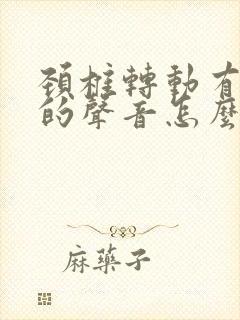 頚椎轉動有
的聲音怎麼
麻藥子